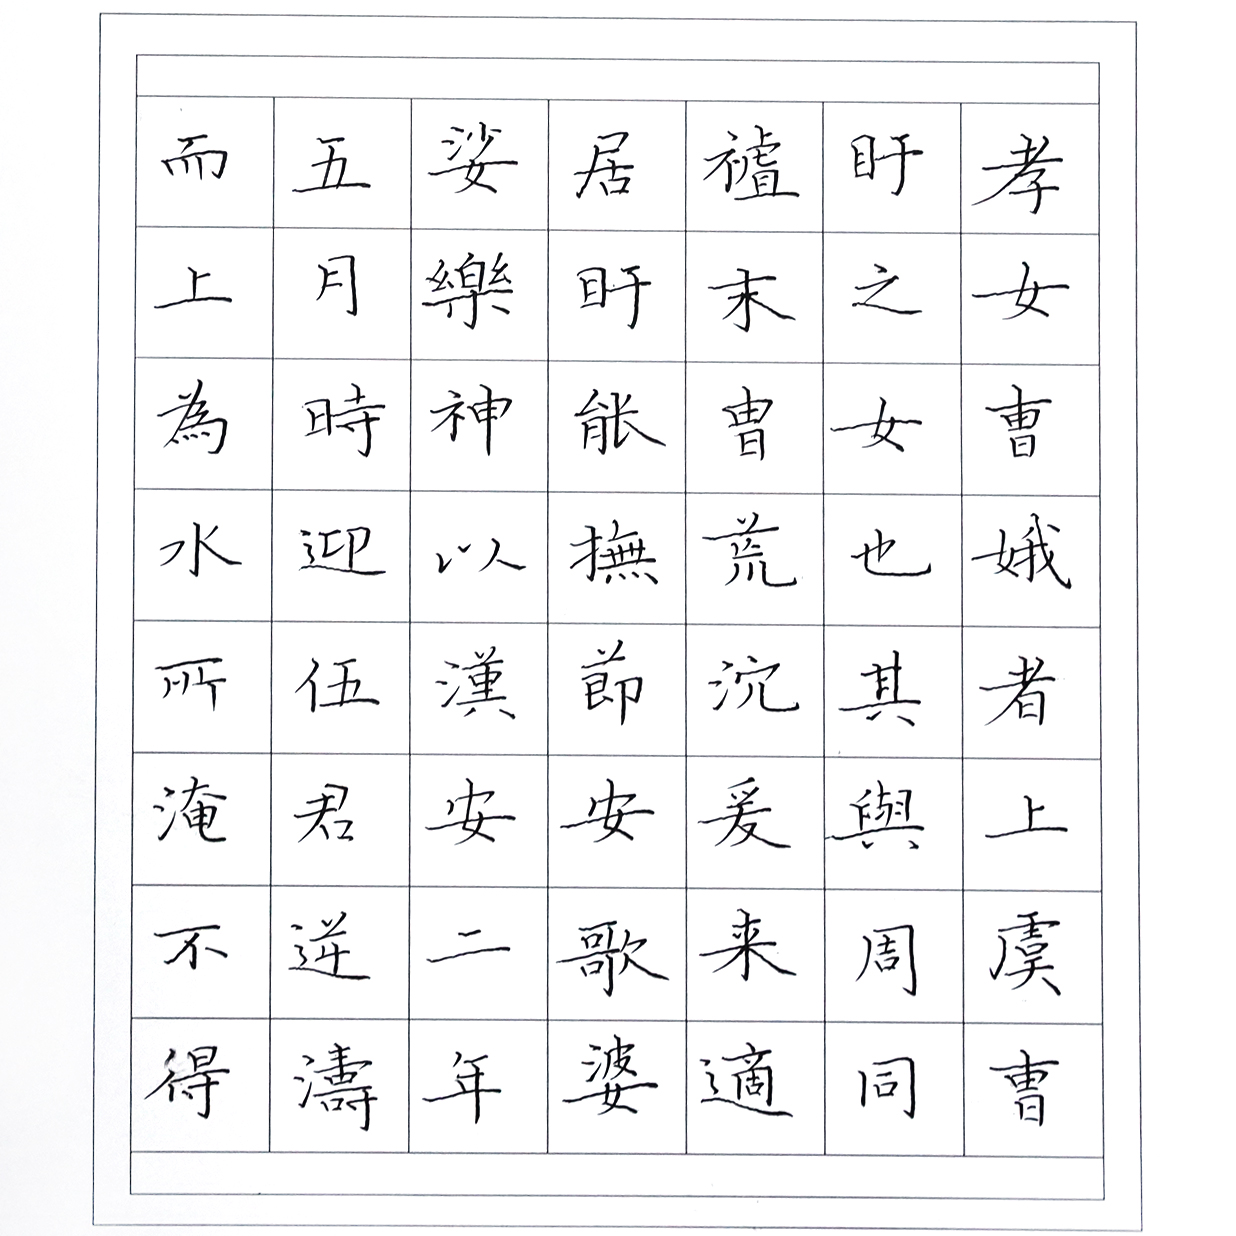 孝女曺娥者上虞曺
盱之女也其與周同
𧙓末曺荒沉爰来適
居盱能撫節安歌婆
娑樂神以漢安二年
五月時迎伍君逆濤
而上為水所淹不得